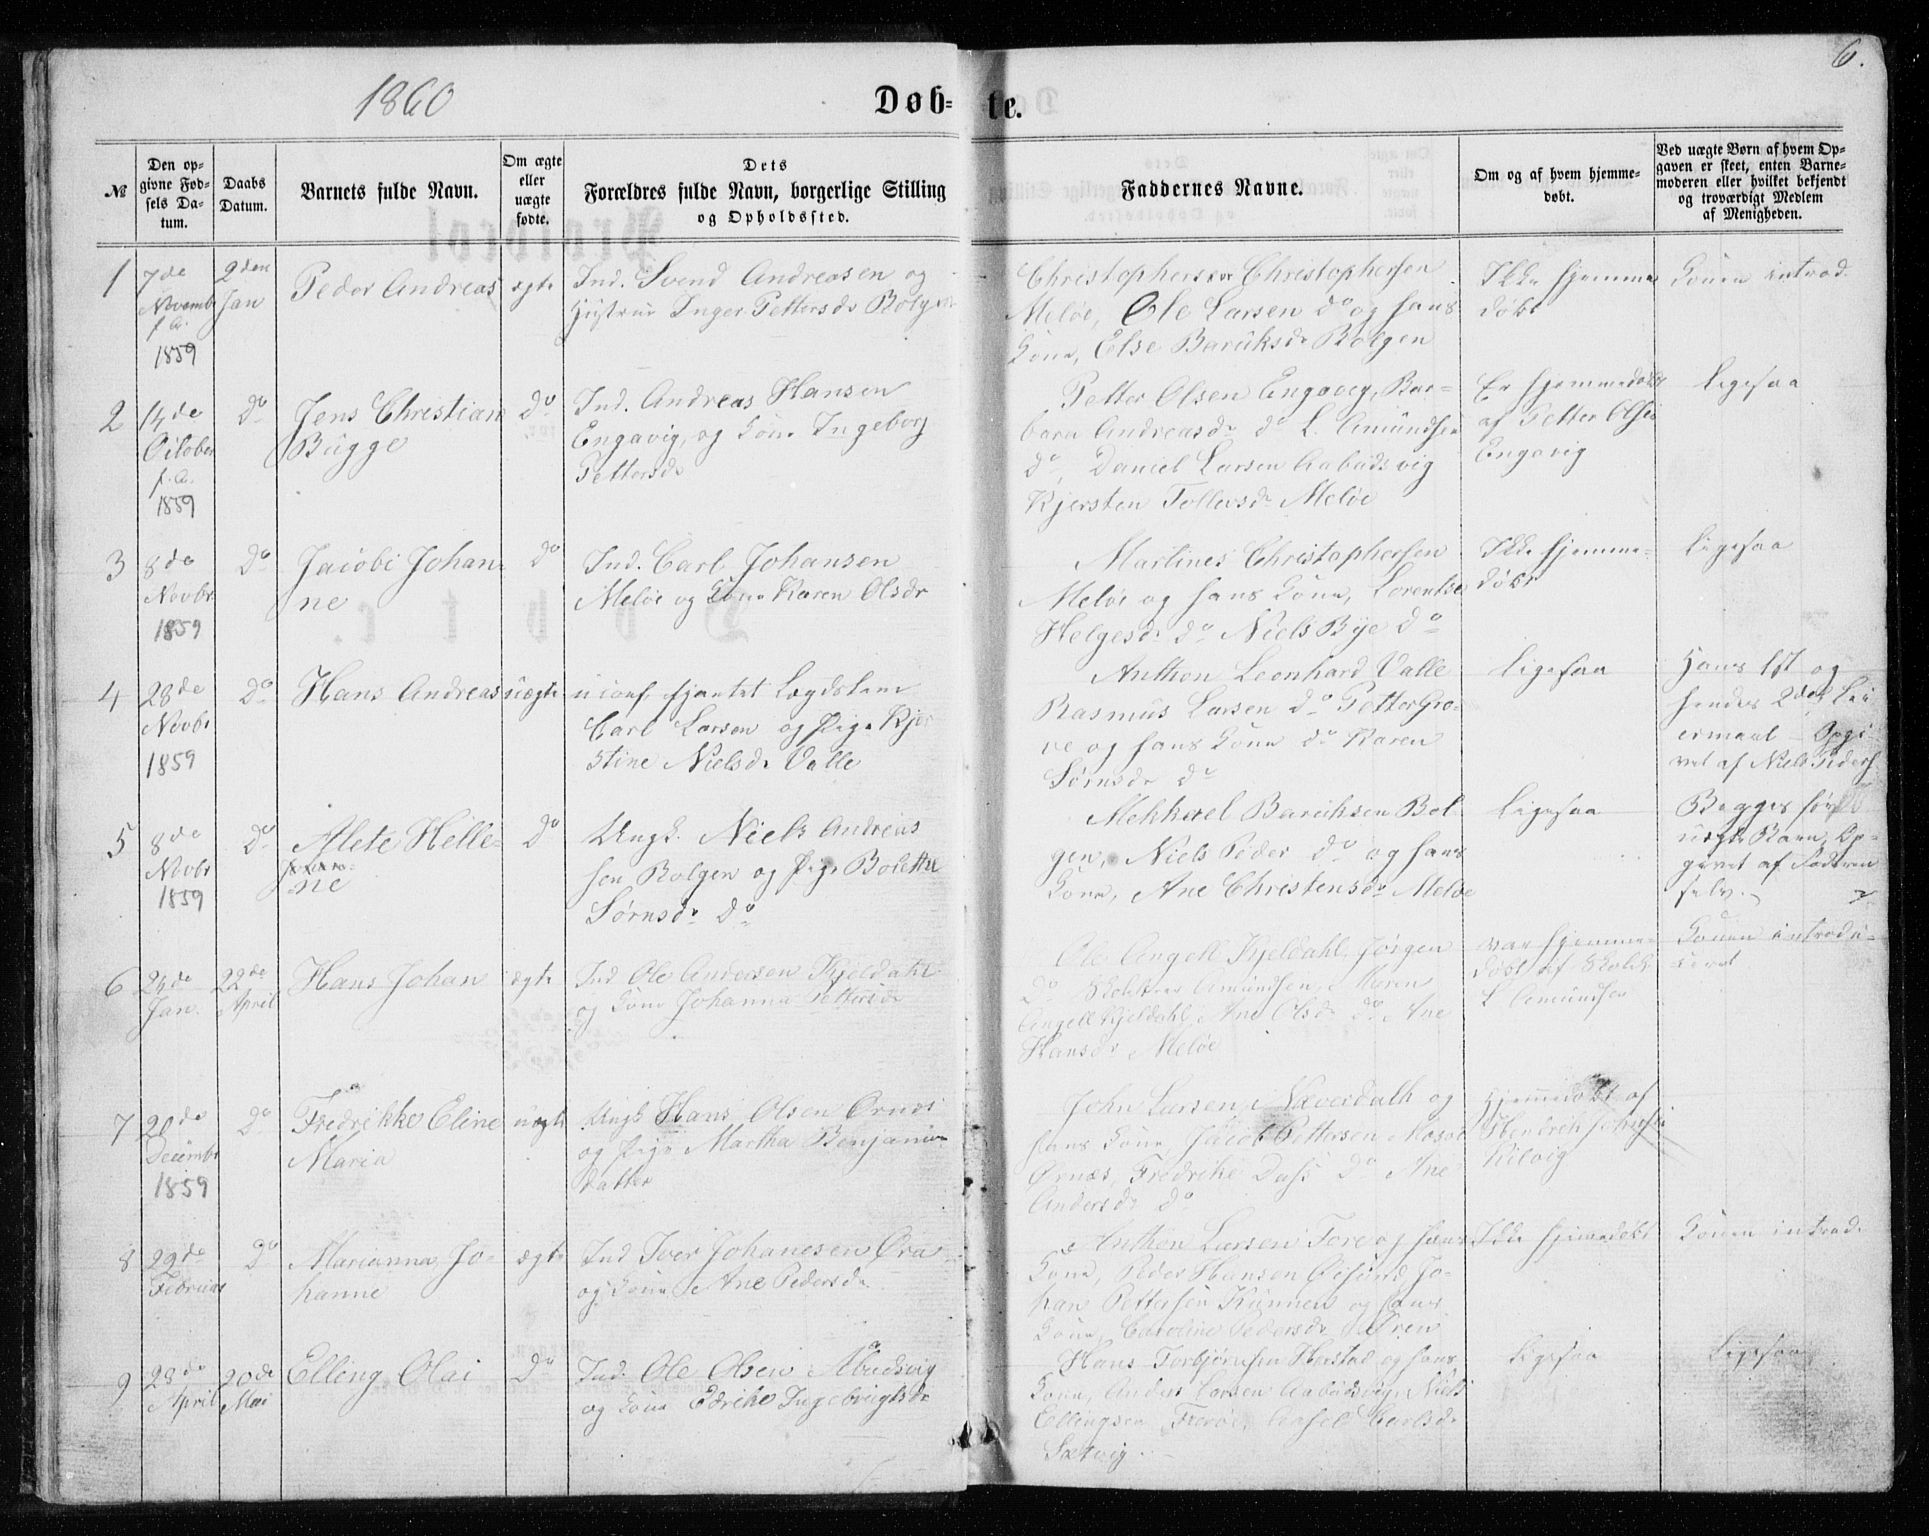 6.
1860
Døb=te.
№
Den op=
givne Fød=
sels Da=
tum.
Daabs
Datum.
Barnets fulde Navn.
Om ægte
eller
uægte
fødte.
Dets
Forældres fulde Navn, borgerlige Stilling
og Opholdssted.
Faddernes Navne.
Om og af hvem hjemme=
døbt.
Ved uægte Børn af hvem Op=
gaven er skeet, enten Barne=
moderen eller hvilket bekjendt
og troværdigt Medlem
af Menigheden.
1
7de
Novembr
f. A.
1859
9den
Jan
Peder Andreas
ægte
Ind. Svend Andreasen og
Hustrue Inger Pettersdr Bolgen
Christophersen
Meløe, Ole Larsen do og hans
Kone, Else Baruksdr Bolgen
Ikke hjemme
døbt
Konen introd.
2
14de
October
f. A.
1859
Do
Jens Christian
Bugge
Do
Ind. Andreas Hansen
Engavig, og Kone Ingeborg
Pettersdr
Petter Olsen Engavig, Bar=
bara Andreasdr do L. Amundsen
do, Daniel Larsen Aabudsvig
Kjersten Tollersdr Meløe
Er hjemmedøbt
af Petter Olsen
Engavig
Ligesaa
3
8de
Novbr
1859
Do
Jacobi Johan=
ne
Do
Ind. Carl Johansen
Meløe og Kone Karen Olsdr
Martines Christophersen
Meløe og hans Kone, Lorentse
Helgesdr do Niels Bye Do
Ikke hjemme=
døbt
Ligesaa
4
28de
Novbr
1859
Do
Hans Andreas
uægte
Carl Larsen og Pige Kjer
stine Nielsdr Valle
Anthon Leonhard Valle
Rasmus Larsen do Petter Gro=
ve og hans Kone do Karen
Sørnsdr do
Ligesaa
Hans 1st og
hendes 2det Lei
ermaal - Opgi=
vet af Niels Peders
5
8de
Novbr
1859
Do
Alete Helle=
ne
Do
Ungk. Niels Andreas
sen Bolgen og Pige Bolette
Sørnsdr Do
Mekhael Baruksen Bol
gen, Niels Peder do og hans
Kone, Ane Christensdr Meløe
Ligesaa
Begges første
uægte Barn, Op=
givet af Faderen
selv.
6
26de
Jan.
22de
April
Hans Johan
ægte
Ind Ole Andersen Kjeldahl
og Kone Johanna Pettersdr
Ole Angell Kjeldahl, Jørgen
do Amundsen, Maren
Angell Kjeldahl, Ane Olsdr do Ane
Hansdr Meløe
var hjemme=
døbt af Skolel.
L Amundsen
Konen introdu=
ceret
7
20de
Decembr
1859
Do
Fredrikke Eline
Maria
uægte
Ungk Hans Olsen Ørnæs
og Pige Martha Benjamin
datter
John Larsen Næverdalh og
hans Kone Jacob Pettersen Mosvol
Ørnæs, Fredrike Dass do Ane
Andersdr do
Hjemmedøbt af
Kilvig
8
29de
Februar
Do
Marianna Jo=
hanne
ægte
Ind Iver Johanesen Øra
og Kone Ane Pedersdr
Anthon Larsen Fore og hans
Kone, Peder Hansen Øisund, Jo=
han Pettersen Kunnen og hans
Kone, Caroline Pedersdr Øren
Ikke hjemedøbt
Konen introd.
9
28de
April
20de
Mai
Elling Olai
Do
Ind. Ole Olsen Abudsvig
og Kone Edrike Ingebrigtsdr
Hans Torbjørnsen Herstad og hans
Kone, Anders Larsen Aabudsvig, Niels
Ellingsen Carlsdr
Sætvig
Ligesaa
Ligesaa